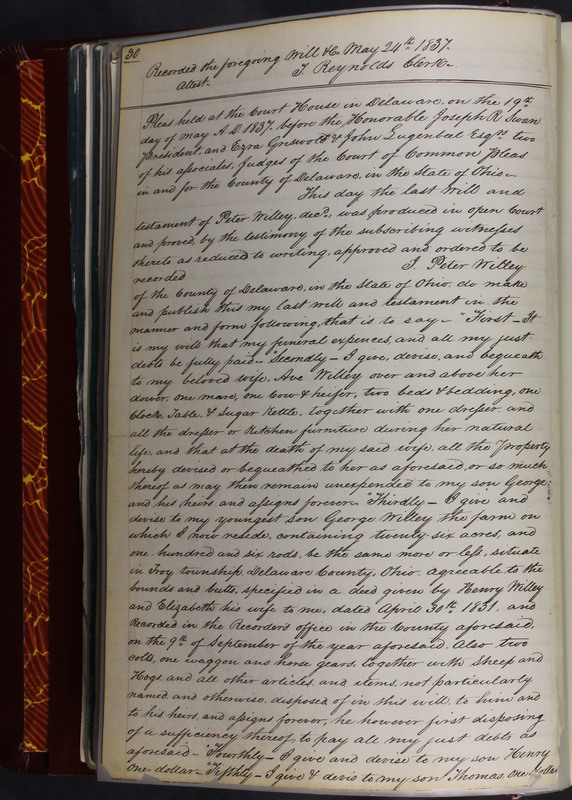 30
Recorded the foregoing Will &c. May 24th 1837.
Attest. T. Reynolds Clerk
Pleas held at the Court House in Delaware, on the 19th
day of may A.D. 1837. before the Honorable Joseph R Swan
President, and Ezra Griswold & John Lugenbeel Esqrs. two
of his associates, Judges of the Court of Common Pleas
in and for the County of Delaware, in the State of Ohio
This day the last Will and
testament of Peter Willey, decd. was produced in open Court
and proved, by the testimony of the subscribing witnesses
thereto as reduced to writing, approved and ordered to be
recorded
I. Peter Willey
of the County of Delaware, in the State of Ohio, do make
and publish this my last will and testament in the
manner and form following, that is to say - "First - It
is my will that my funeral expences, and all my just
debts be fully paid - "Secondly - I give, devise, and bequeath
to my beloved wife, Ave Willey over and above her
dower, one mare, one Cow & heifer, two beds & bedding, one
Clock, Table, & Sugar Kettle, together with one dresser and
all the dresser or Kitchen furniture during her natural
life, and that at the death of my said wife, all the property
hereby devised or bequeathed to her as aforesaid, or so much
thereof as may then remain unexpended to my son George
and his heirs and assigns forever - "Thirdly - I give and
devise to my youngest son George Willey the farm on
which I now reside, containing twenty six acres, and
one hundred and six rods, be the same more or less, situate
in Troy township, Delaware County, Ohio. agreeable to the
bounds and butts, specified in a deed given by Henry Willey
and Elizabeth his wife to me, dated April 30th. 1831. and
Recorded in the Recorders office in the County aforesaid,
on the 9th of September of the year aforesaid. Also two
colts, one waggon and horse gears, together with Sheep and
Hogs and all other articles, and items, not particularly
named, and otherwise disposed of in this will, to him and
to his heirs, and assigns forever, he however first disposing
of a sufficiency thereof, to pay all my just debts as
aforesaid - "Fourthly - I give and devise to my son Henry
One dollar - "Fifthly - I give & devis to my son Thomas, one dollar